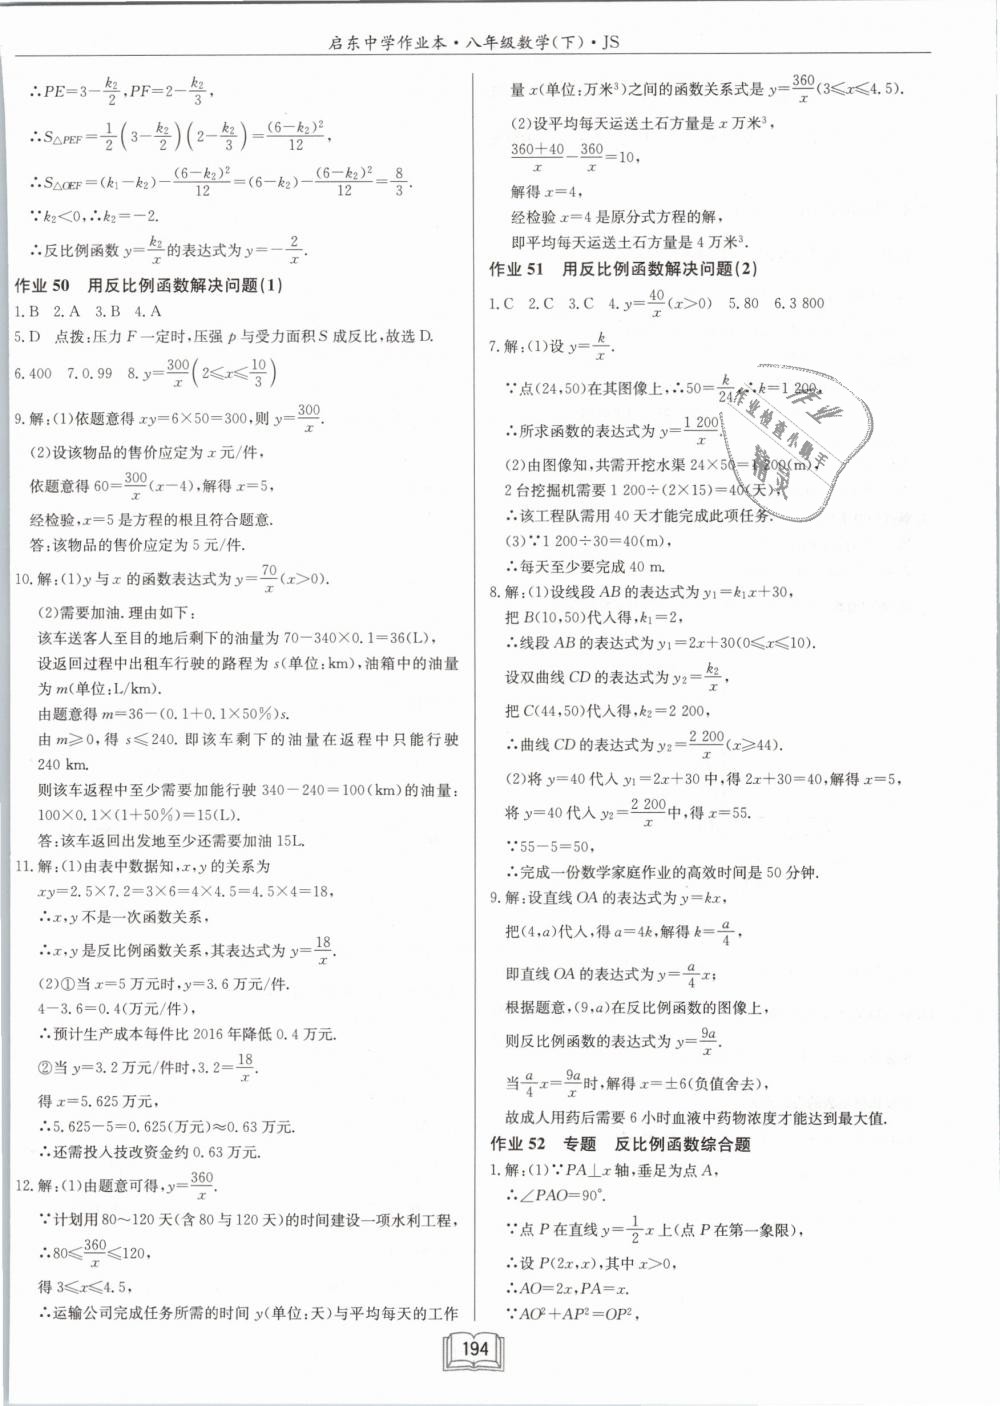 启东中学作业本·八年级数学(下)·JS
∴PE=3-k₂/2,PF=2-k₂/3,
∴S△PEF=1/2(3-k₂/2)(2-k₂/3)=(6-k₂)²/12,
∴S△OEF=(k₁-k₂)-(6-k₂)²/12=(6-k₂)-(6-k₂)²/12=8/3.
∵k₂<0,∴k₂=-2.
∴反比例函数 y=k₂/x的表达式为 y=-2/x.
作业 50 用反比例函数解决问题(1)
1.B 2.A 3.B 4.A
5.D 点拨:压力 F 一定时,压强 p 与受力面积 S 成反比,故选 D.
6.400 7.0.99 8.y=300/x(2≤x≤10/3)
9.解:(1)依题意得 xy=6×50=300,则 y=300/x.
(2)设该物品的售价应定为 x 元/件,
依题意得 60=300/x(x-4),解得 x=5,
经检验,x=5 是方程的根且符合题意.
答:该物品的售价应定为 5 元/件.
10.解:(1)y 与 x 的函数表达式为 y=70/x(x>0).
(2)需要加油.理由如下:
该车送客人至目的地后剩下的油量为 70-340×0.1=36(L),
设返回过程中出租车行驶的路程为 s(单位:km),油箱中的油量
为 m(单位:L/km).
由题意得 m=36-(0.1+0.1×50%)s.
由 m≥0,得 s≤240.即该车剩下的油量在返程中只能行驶
240 km.
则该车返程中至少需要加能行驶 340-240=100(km)的油量:
100×0.1×(1+50%)=15(L).
答:该车返回出发地至少还需要加油 15L.
11.解:(1)由表中数据知,x,y 的关系为
xy=2.5×7.2=3×6=4×4.5=4.5×4=18,
∴x,y 不是一次函数关系,
∴x,y 是反比例函数关系,其表达式为 y=18/x.
(2)①当 x=5 万元时,y=3.6 万元/件.
4-3.6=0.4(万元/件),
∴预计生产成本每件比 2016 年降低 0.4 万元.
②当 y=3.2 万元/件时,3.2=18/x.
得 x=5.625 万元,
∴5.625-5=0.625(万元)≈0.63 万元.
∴还需投入技改资金约 0.63 万元.
12.解:(1)由题意可得,y=360/x.
∵计划用 80～120 天(含 80 与 120 天)的时间建设一项水利工程,
∴80≤360/x≤120,
得 3≤x≤4.5,
∴运输公司完成任务所需的时间 y(单位:天)与平均每天的工作
量 x(单位:万米³)之间的函数关系式是 y=360/x(3≤x≤4.5).
(2)设平均每天运送土石方量是 x 万米³,
(360+40)/x-360/x=10,
解得 x=4,
经检验 x=4 是原分式方程的解,
即平均每天运送土石方量是 4 万米³.
作业 51 用反比例函数解决问题(2)
1.C 2.C 3.C 4.y=40/x(x>0) 5.80 6.3 800
7.解:(1)设 y=k/x.
∵点(24,50)在其图像上,∴50=k/24,∴k=1 200,
∴所求函数的表达式为 y=1 200/x.
(2)由图像知,共需开挖水渠 24×50=1 200(m),
2 台挖掘机需要 1 200÷(2×15)=40(天),
∴该工程队需用 40 天才能完成此项任务.
(3)∵1 200÷30=40(m),
∴每天至少要完成 40 m.
8.解:(1)设线段 AB 的表达式为 y₁=k₁x+30,
把 B(10,50)代入得,k₁=2,
∴线段 AB 的表达式为 y₁=2x+30(0≤x≤10).
设双曲线 CD 的表达式为 y₂=k₂/x,
把 C(44,50)代入得,k₂=2 200,
∴曲线 CD 的表达式为 y₂=2 200/x(x≥44).
(2)将 y=40 代入 y₁=2x+30 中,得 2x+30=40,解得 x=5,
将 y=40 代入 y₂=2 200/x中,得 x=55.
∵55-5=50,
∴完成一份数学家庭作业的高效时间是 50 分钟.
9.解:设直线 OA 的表达式为 y=kx,
把(4,a)代入,得 a=4k,解得 k=a/4,
即直线 OA 的表达式为 y=a/4x;
根据题意,(9,a)在反比例函数的图像上,
则反比例函数的表达式为 y=9a/x.
当a/4x=9a/x时,解得 x=±6(负值舍去),
故成人用药后需要 6 小时血液中药物浓度才能达到最大值.
作业 52 专题 反比例函数综合题
1.解:(1)∵PA⊥x 轴,垂足为点 A,
∴∠PAO=90°.
∵点 P 在直线 y=1/2x 上(点 P 在第一象限),
∴设 P(2x,x),其中 x>0,
∴AO=2x,PA=x.
∵AO²+AP²=OP²,
作业
作业检查小助手
精灵
194